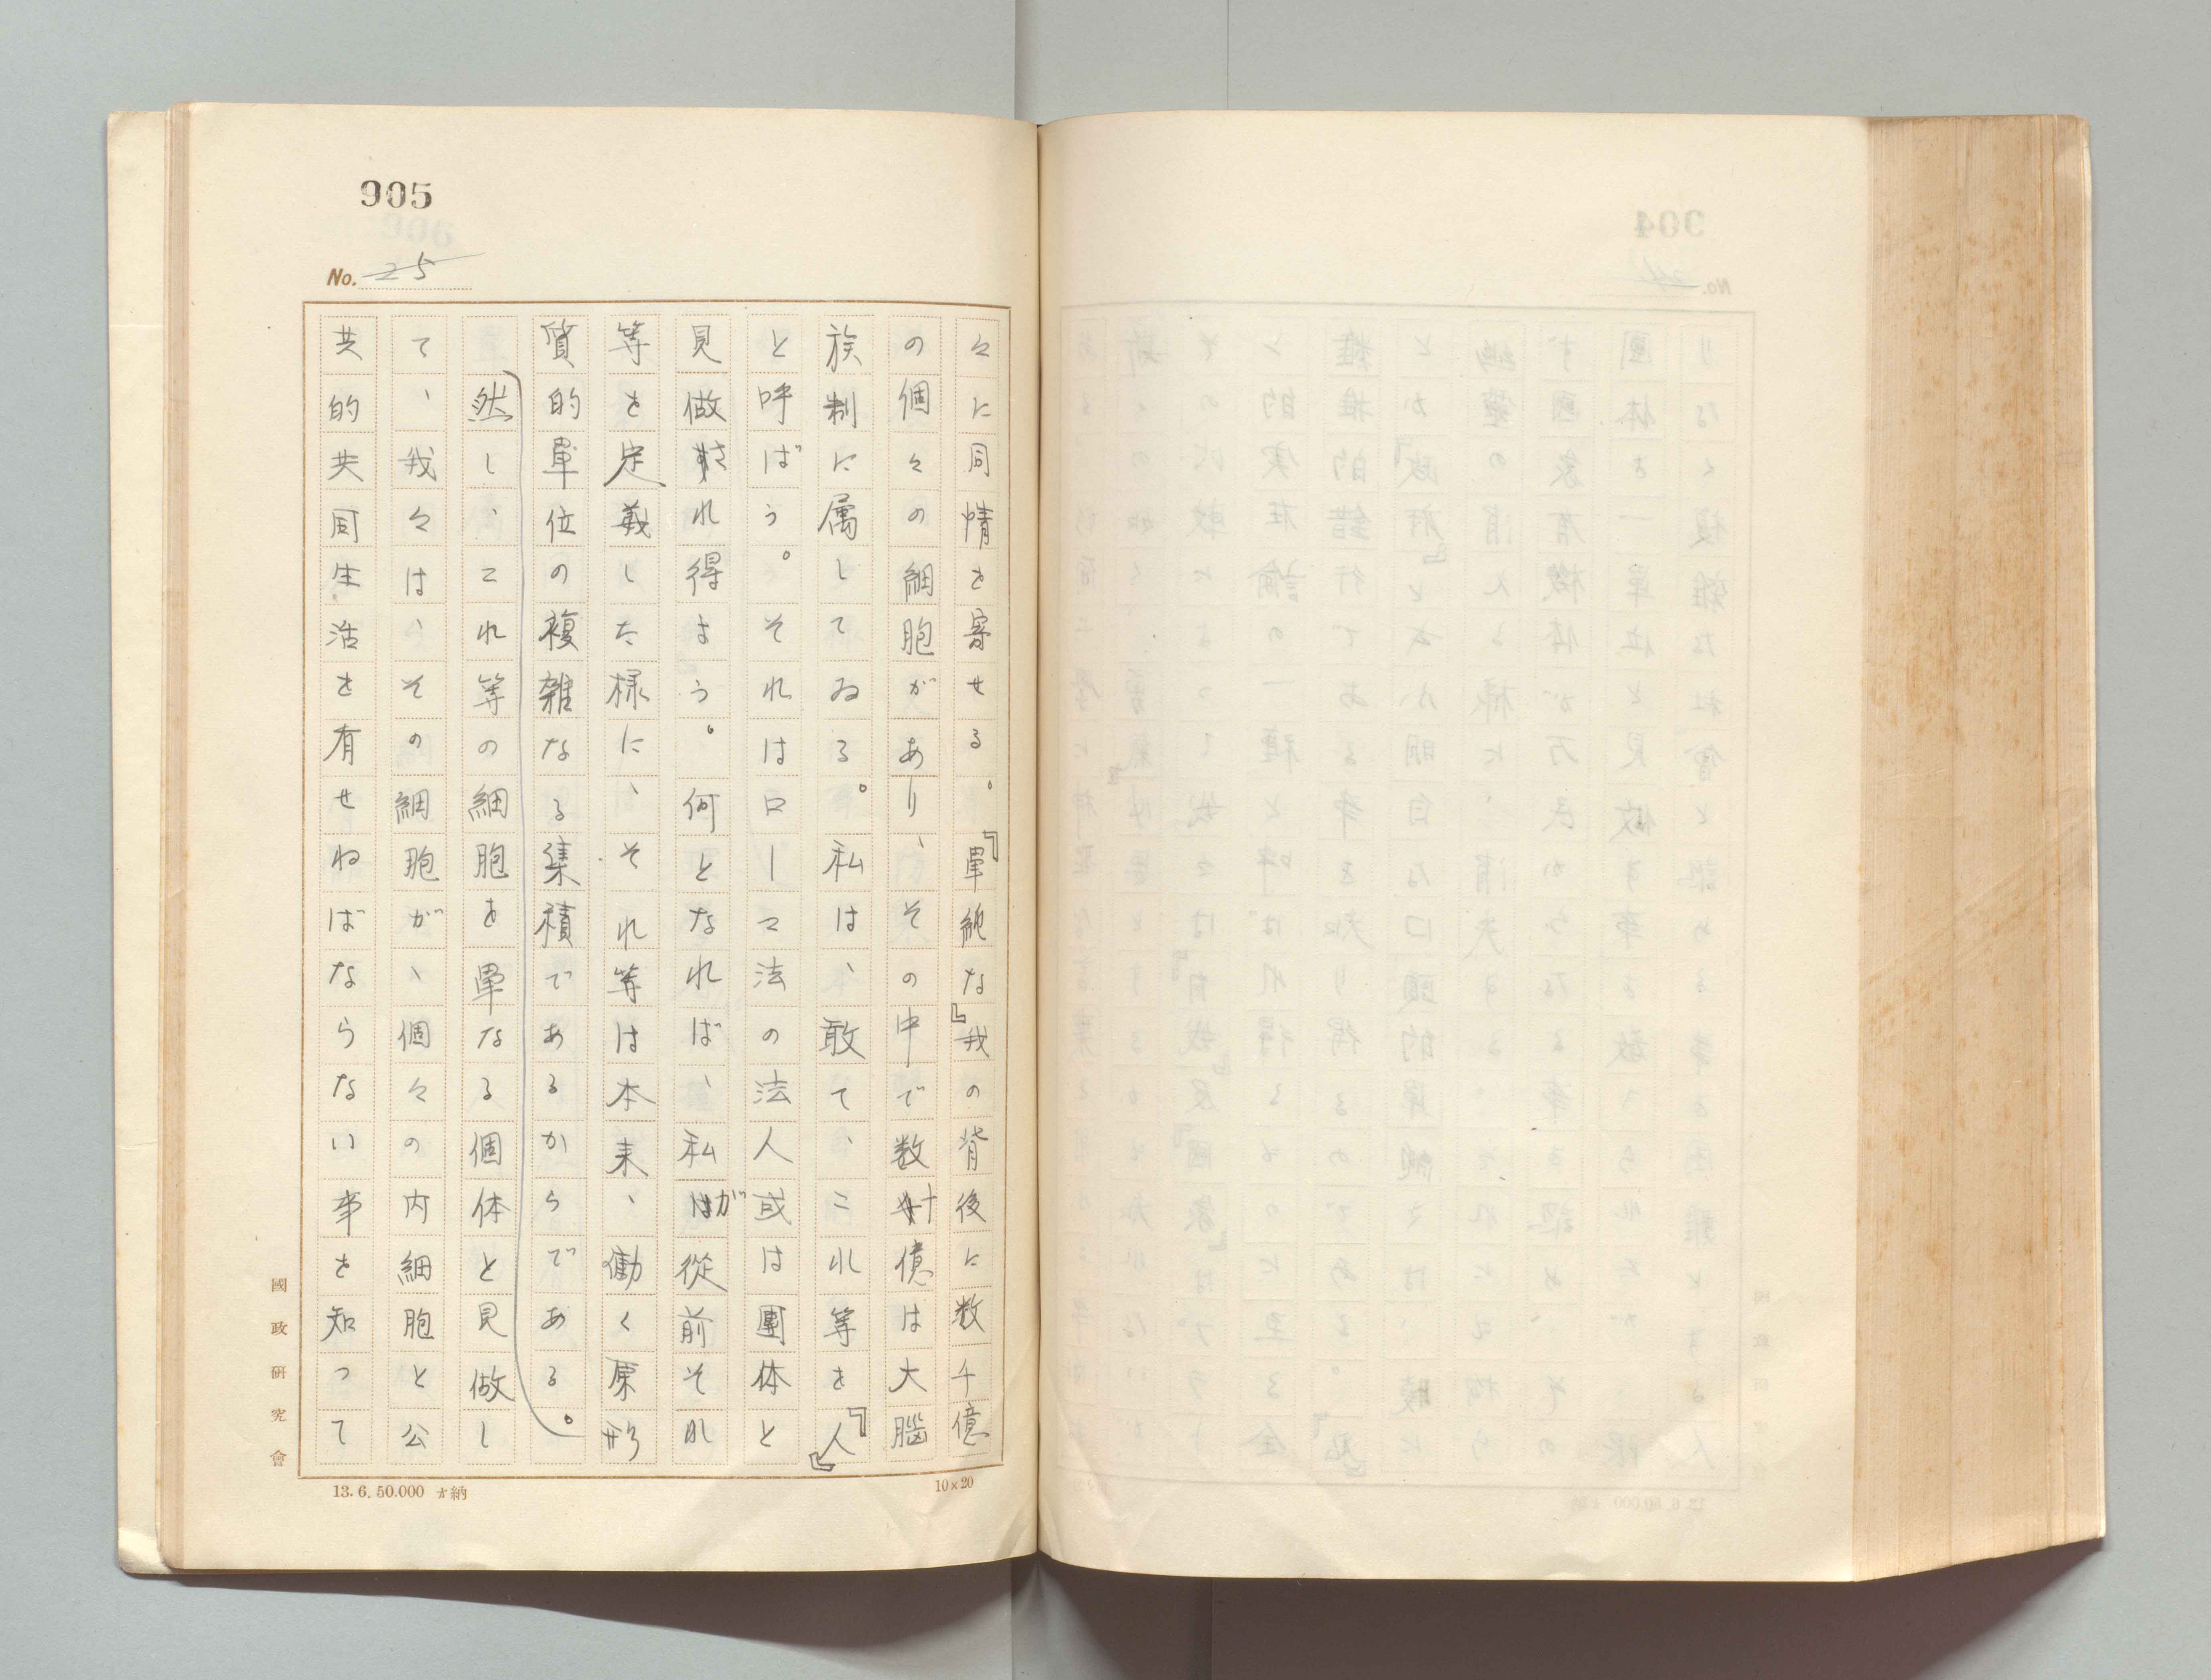 905
No. 25
々に同情を寄せる。『單純な』我の背後に数千億
の個々の細胞があり、その中で数十億は大腦
族制に属してゐる。私は、敢て、これ等を『人』
と呼ばう。それは口ーマ法の法人或は團体と
見做され得よう。何となれば、私が從前それ
等を定義した様に、それ等は本来、働く原形
質的單位の複雑なる集積であるからである。
然し、これ等の細胞を單なる個体と見做し
て、我々は、その細胞が、個々の内細胞と公
共的共同生活を有せねばならない事を知って
國政研究會
13.6.50.000 納
10×20